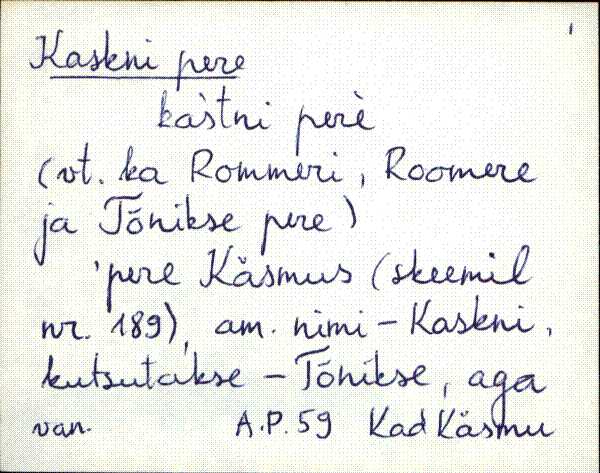 Kaskni pere
kàstni perè
(vt. ka Rommeri, Roomere
ja Tõnikse pere)
'pere Käsmus (skeemil
nr. 189), am. nimi – Kaskni,
kutsutakse – Tõnikse, aga
van. A.P. 59 Kad Käsmu